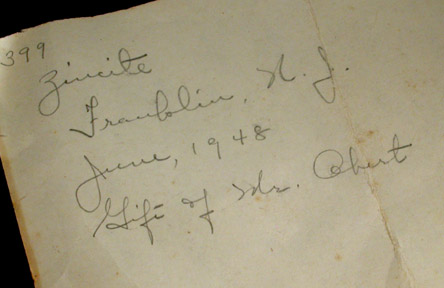 399
Zincite
Franklin, N. J.
June, 1948
Gift of Mr. Obert